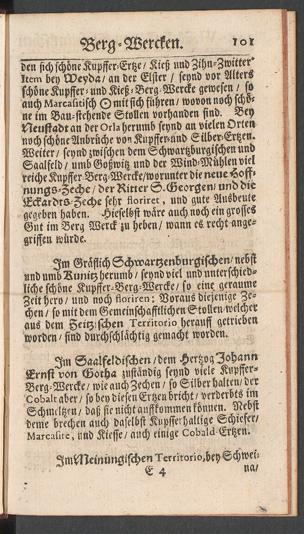 Berg-Wercken. 101
den sich schöne Kupffer-Ertze / Kieß und Zihn-Zwitter
Item bey Weyda / an der Elster / seynd vor Alters
schöne Kupffer- und Kieß-Berg-Wercke gewesen / so
auch Marcasitisch ☉ mit sich führen / wovon noch schö-
ne im Bau-stehende Stollen vorhanden sind. Bey
Neustadt an der Orla herumb seynd an vielen Orten
noch schöne Anbrüche von Kupffer- und Silber-Ertzen.
Weiter / seynd zwischen dem Schwartzburgischen und
Saalfeld / umb Goßwitz und der Wind-Mühlen viel
reiche Kupffer Berg-Wercke / worunter die neue Hoff-
nungs-Zeche / der Ritter S. Georgen / und die
Eckardts-Zeche sehr floriret, und gute Ausbeute
gegeben haben. Hieselbst wäre auch noch ein grosses
Gut im Berg Werck zu heben / wann es recht ange-
griffen würde.
Im Gräflich Schwartzenburgischen / nebst
und umb Kunitz herumb / seynd viel und unterschied-
liche schöne Kupffer-Berg-Wercke / so eine geraume
Zeit hero / und noch floriren; Voraus diejenige Ze-
chen / so mit dem Gemeinschafftlichen Stollen welcher
aus dem Zeitz;schen Territorio herauff getrieben
worden / sind durchschlächtig gemacht worden.
Im Saalfeldischen / dem Hertzog Johann
Ernst von Gotha zuständig seynd viele Kupffer-
Berg-Wercke / wie auch Zechen / so Silber halten / der
Cobalt aber / so bey diesen Ertzen bricht / verderbts im
Schmeltzen / daß sie nicht auffkommen können. Nebst
deme brechen auch daselbst Kupfferhaltige Schiefer /
Marcasite, und Kiesse / auch einige Cobald-Ertzen.
Im Meinungischen Territorio, bey Schwei-
E 4 na /